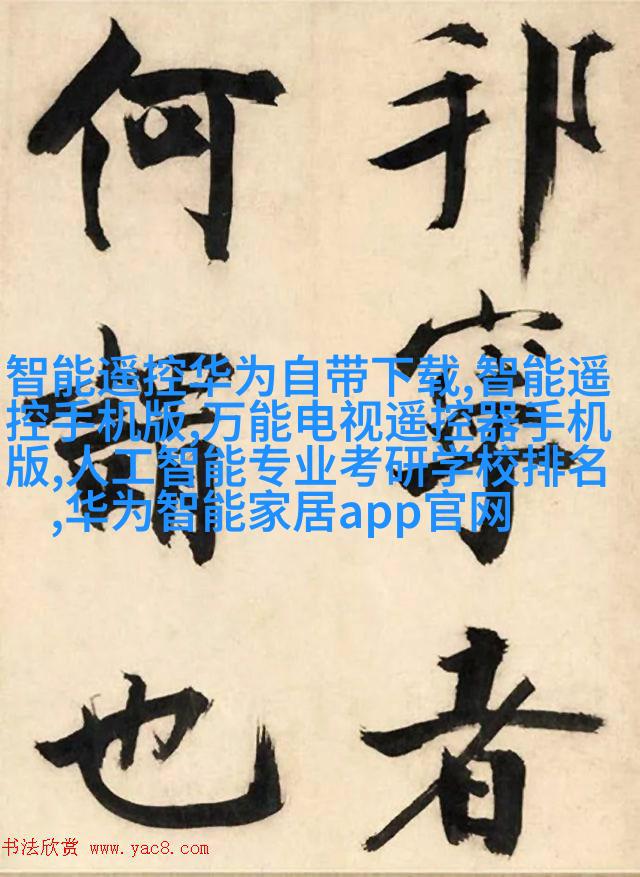 邦寧者
何謂也
智能遥控华为自带下载,智能遥
控手机版,万能电视遥控器手机
版,人工智能专业考研学校排名
,华为智能家居app官网
书法欣赏 www.yac8.com